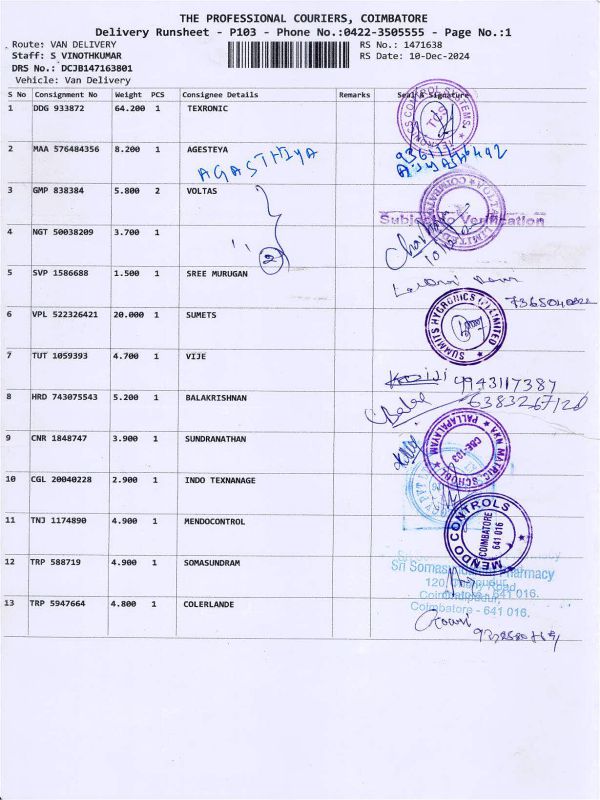 THE PROFESSIONAL COURIERS, COIMBATORE
Delivery Runsheet - P103 - Phone No.:0422-3505555 - Page No.:1
Route: VAN DELIVERY RS No.: 1471638
Staff: S VINOTHKUMAR RS Date: 10-Dec-2024
DRS No.: DCJB147163801
Vehicle: Van Delivery
S No Consignment No Weight PCS Consignee Details Remarks Seal & Signature
1 DDG 933872 64.200 1 TEXRONIC
2 MAA 576484356 8.200 1 AGESTEYA
AGASTHIYA
3 GMP 838384 5.800 2 VOLTAS
Subject to Verification
4 NGT 50038209 3.700 1
2
5 SVP 1586688 1.500 1 SREE MURUGAN
6 VPL 522326421 20.000 1 SUMETS
SUMMITS HYGRONICS LIMITED
7 TUT 1059393 4.700 1 VIJE
9943117387
8 HRD 743075543 5.200 1 BALAKRISHNAN
9 CNR 1848747 3.900 1 SUNDRANATHAN
VAN MATRIC SCHOOL PALLAPALAYAM
CBE-103
10 CGL 20040228 2.900 1 INDO TEXNANAGE
11 TNJ 1174890 4.900 1 MENDOCONTROL
MENDO CONTROLS
COIMBATORE
641 016
12 TRP 588719 4.900 1 SOMASUNDRAM
Sri Somas Pharmacy
120, Road,
Coimbatore - 641 016.
13 TRP 5947664 4.800 1 COLERLANDE